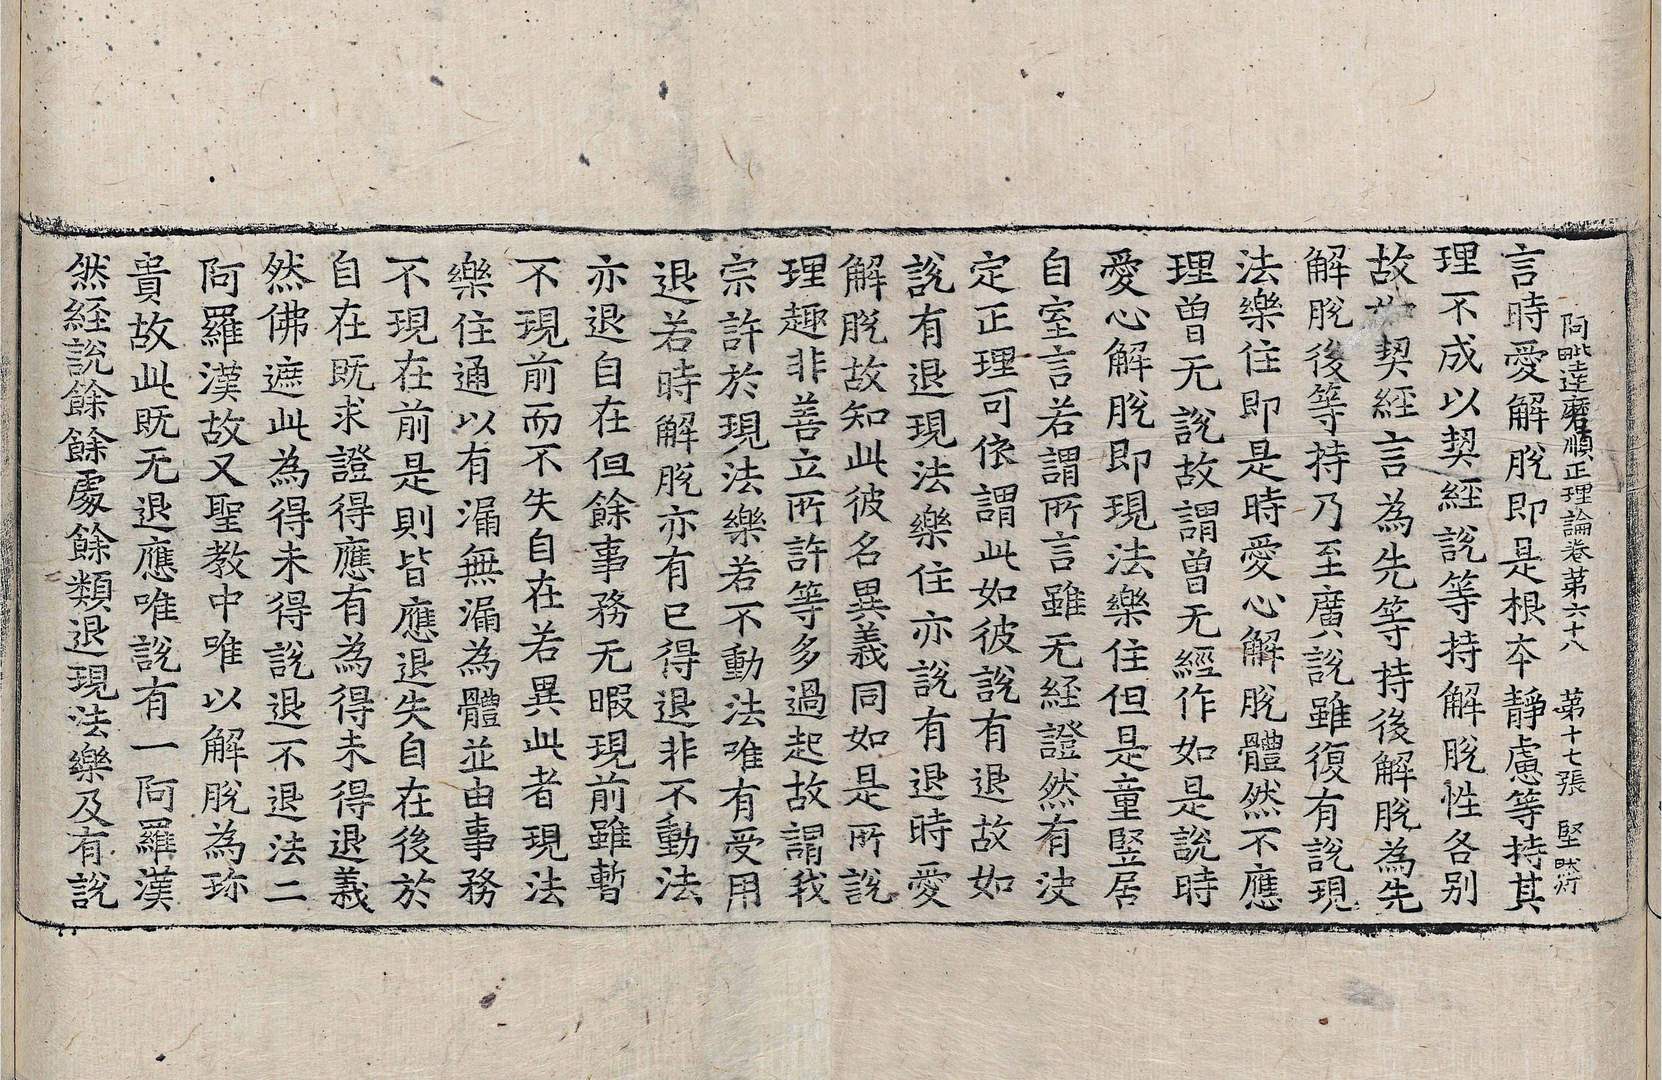 阿毗達磨順正理論卷第六十八 第十七張 堅
言時愛解脫即是根本靜慮等持其
理不成以契經說等持解脫性各別
故契經言為先等持後解脫為先
解脫後等持乃至廣說雖復有說現
法樂住即是時愛心解脫體然不應
理曾无說故謂曾无經作如是說時
愛心解脫即現法樂住但是童竪居
自室言若謂所言雖无経證然有决
定正理可依謂此如彼說有退故如
說有退現法樂住亦說有退時愛
解脫故知此彼名異義同如是所說
理趣非善立所許等多過起故謂我
宗許於現法樂若不動法唯有受用
退若時解脫亦有已得退非不動法
亦退自在但餘事務无暇現前雖暫
不現前而不失自在若異此者現法
樂住通以有漏無漏為體並由事務
不現在前是則皆應退失自在後於
自在既求證得應有為得未得退義
然佛遮此為得未得說退不退法二
阿羅漢故又聖教中唯以解脫為珎
貴故此既无退應唯說有一阿羅漢
然経說餘餘處餘類退現法樂及有說